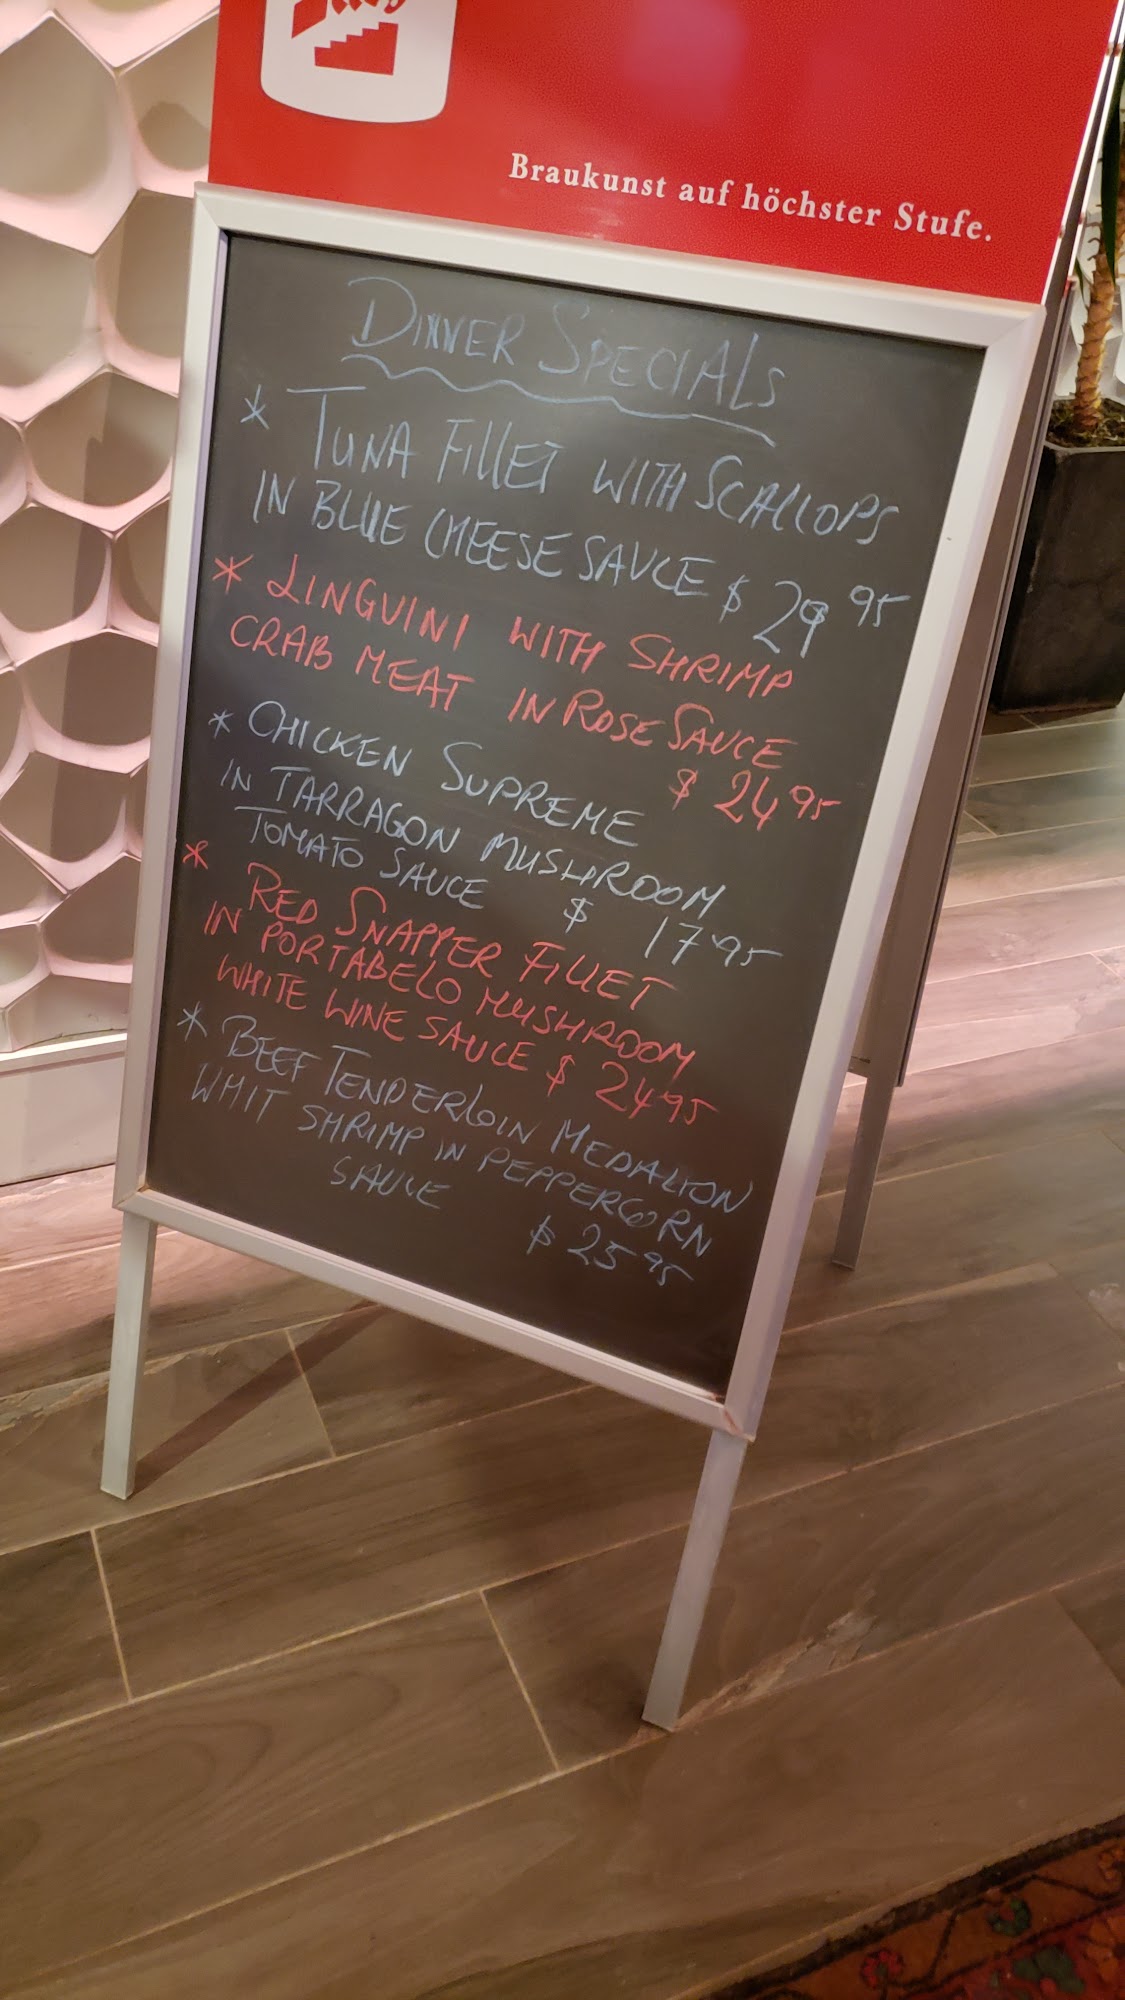 Braukunst auf höchster Stufe.
DINNER SPECIALS
* TUNA FILLET WITH SCALLOPS
IN BLUE CHEESE SAUCE $ 29 95
* LINGUINI WITH SHRIMP
CRAB MEAT IN ROSE SAUCE
$ 24 95
* CHICKEN SUPREME
IN TARRAGON MUSHROOM
TOMATO SAUCE $ 17 95
* RED SNAPPER FILLET
IN PORTABELO MUSHROOM
WHITE WINE SAUCE $ 24 95
* BEEF TENDERLOIN MEDALION
WHIT SHRIMP IN PEPPERCORN
SAUCE $ 25 95